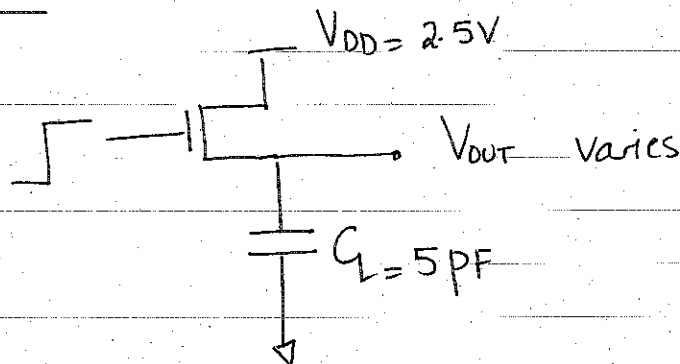 V_DD = 2.5V
V_OUT varies
C_L = 5 pF